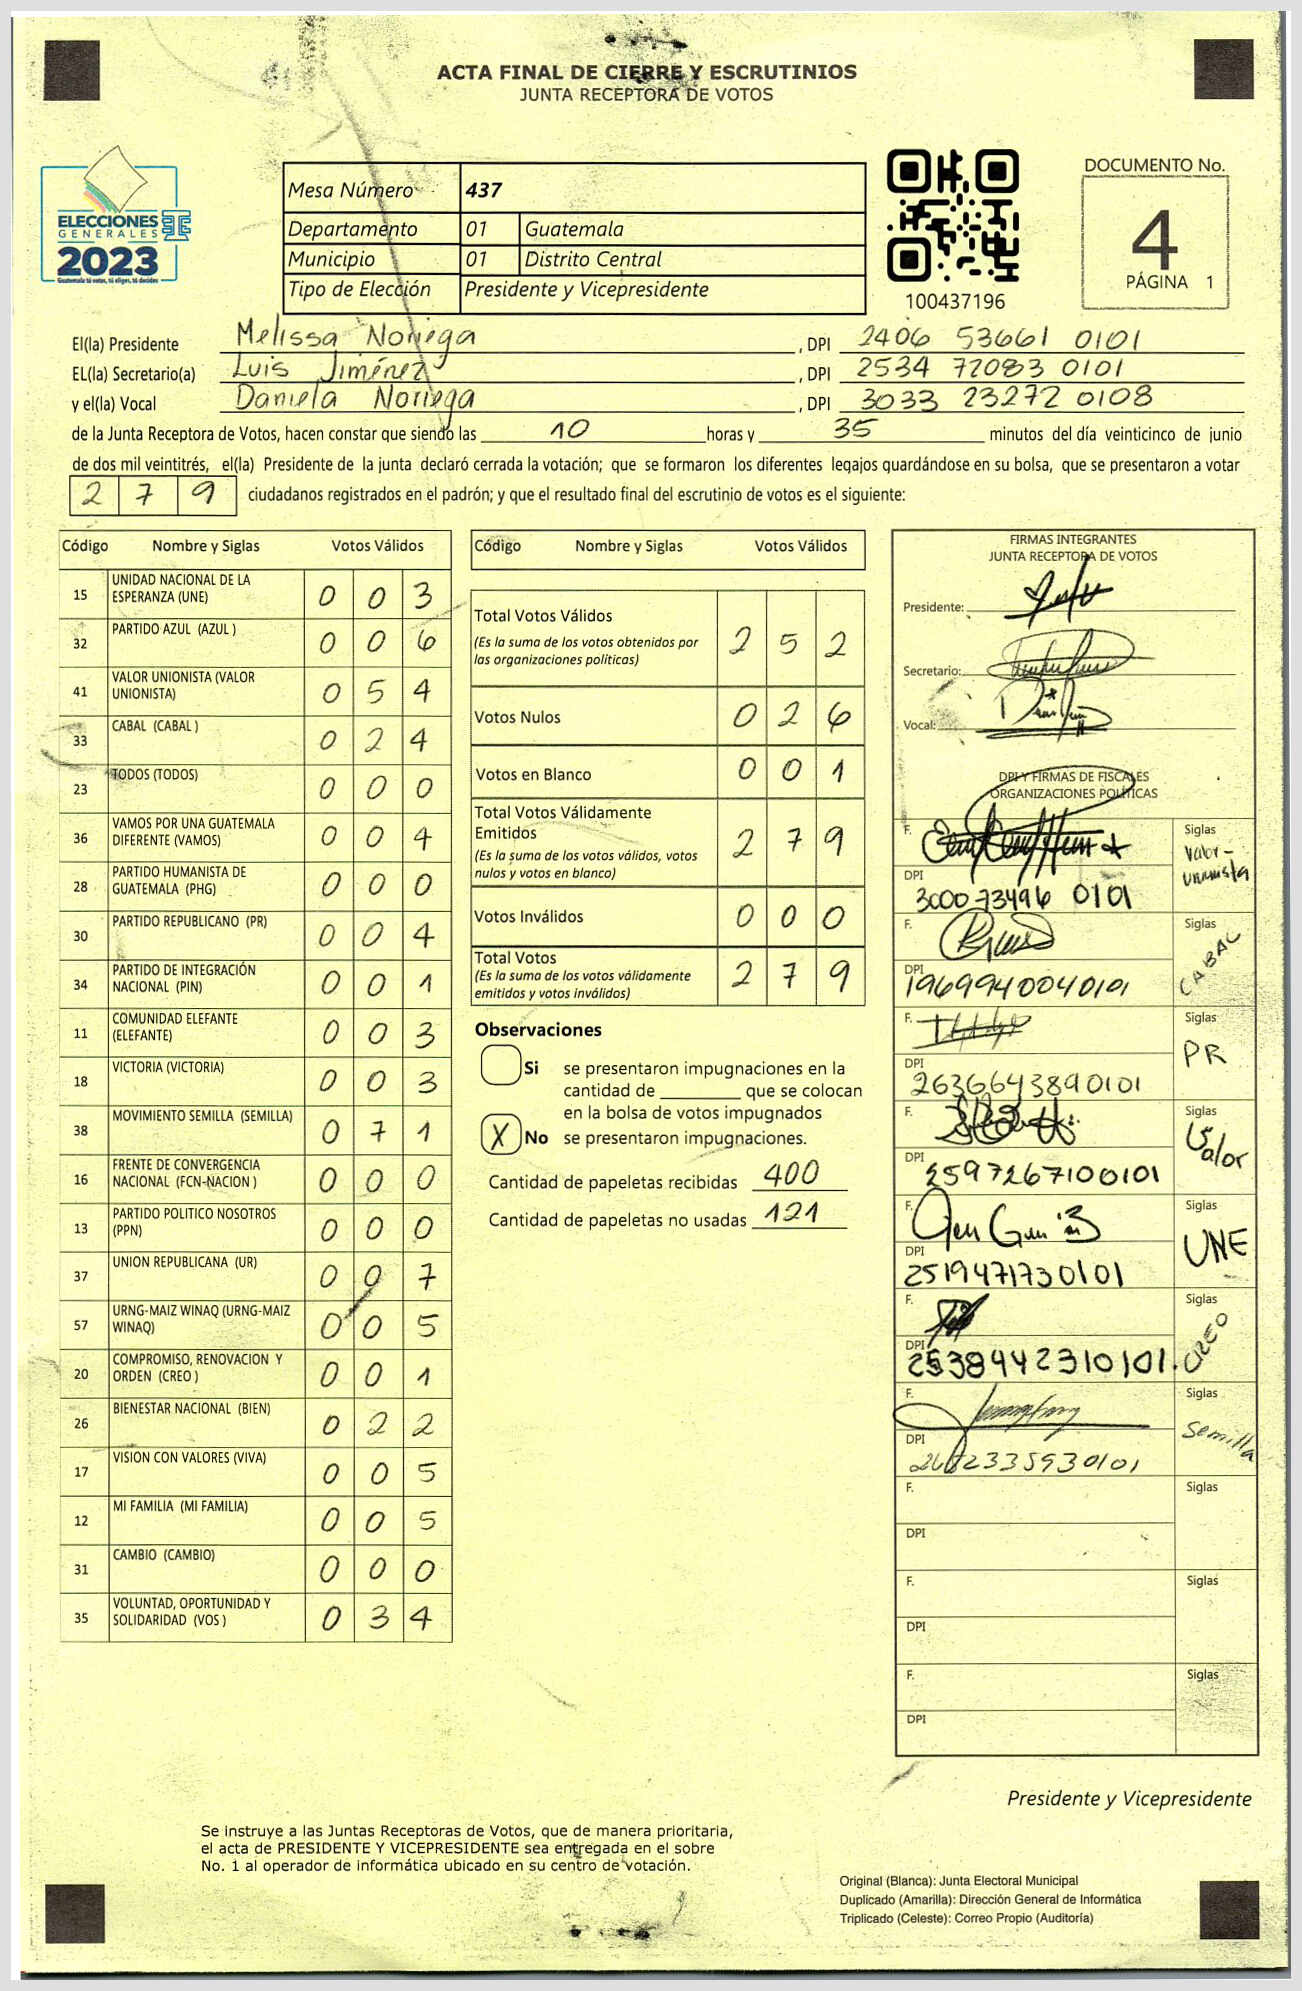 ACTA FINAL DE CIERRE Y ESCRUTINIOS
JUNTA RECEPTORA DE VOTOS
ELECCIONES
GENERALES
2023
Guatemala tú votas, tú eliges, tú decides
Mesa Número 437
Departamento 01 Guatemala
Municipio 01 Distrito Central
Tipo de Elección Presidente y Vicepresidente
100437196
DOCUMENTO No.
4
PÁGINA 1
El(la) Presidente Melissa Noriega , DPI 2406 53661 0101
EL(la) Secretario(a) Luis Jiménez , DPI 2534 72083 0101
y el(la) Vocal Daniela Noriega , DPI 3033 23272 0108
de la Junta Receptora de Votos, hacen constar que siendo las 10 horas y 35 minutos del día veinticinco de junio
de dos mil veintitrés, el(la) Presidente de la junta declaró cerrada la votación; que se formaron los diferentes legajos guardándose en su bolsa, que se presentaron a votar
2 7 9 ciudadanos registrados en el padrón; y que el resultado final del escrutinio de votos es el siguiente:
Código Nombre y Siglas Votos Válidos
15 UNIDAD NACIONAL DE LA ESPERANZA (UNE) 0 0 3
32 PARTIDO AZUL (AZUL ) 0 0 6
41 VALOR UNIONISTA (VALOR UNIONISTA) 0 5 4
33 CABAL (CABAL ) 0 2 4
23 TODOS (TODOS) 0 0 0
36 VAMOS POR UNA GUATEMALA DIFERENTE (VAMOS) 0 0 4
28 PARTIDO HUMANISTA DE GUATEMALA (PHG) 0 0 0
30 PARTIDO REPUBLICANO (PR) 0 0 4
34 PARTIDO DE INTEGRACIÓN NACIONAL (PIN) 0 0 1
11 COMUNIDAD ELEFANTE (ELEFANTE) 0 0 3
18 VICTORIA (VICTORIA) 0 0 3
38 MOVIMIENTO SEMILLA (SEMILLA) 0 7 1
16 FRENTE DE CONVERGENCIA NACIONAL (FCN-NACION ) 0 0 0
13 PARTIDO POLITICO NOSOTROS (PPN) 0 0 0
37 UNION REPUBLICANA (UR) 0 0 7
57 URNG-MAIZ WINAQ (URNG-MAIZ WINAQ) 0 0 5
20 COMPROMISO, RENOVACION Y ORDEN (CREO ) 0 0 1
26 BIENESTAR NACIONAL (BIEN) 0 2 2
17 VISION CON VALORES (VIVA) 0 0 5
12 MI FAMILIA (MI FAMILIA) 0 0 5
31 CAMBIO (CAMBIO) 0 0 0
35 VOLUNTAD, OPORTUNIDAD Y SOLIDARIDAD (VOS ) 0 3 4
Código Nombre y Siglas Votos Válidos
Total Votos Válidos 2 5 2
(Es la suma de los votos obtenidos por
las organizaciones políticas)
Votos Nulos 0 2 6
Votos en Blanco 0 0 1
Total Votos Válidamente
Emitidos 2 7 9
(Es la suma de los votos válidos, votos
nulos y votos en blanco)
Votos Inválidos 0 0 0
Total Votos 2 7 9
(Es la suma de los votos válidamente
emitidos y votos inválidos)
Observaciones
Si se presentaron impugnaciones en la
cantidad de ________ que se colocan
en la bolsa de votos impugnados
X No se presentaron impugnaciones.
Cantidad de papeletas recibidas 400
Cantidad de papeletas no usadas 121
FIRMAS INTEGRANTES
JUNTA RECEPTORA DE VOTOS
Presidente:
Secretario:
Vocal:
DPI Y FIRMAS DE FISCALES
ORGANIZACIONES POLÍTICAS
F. Siglas Valor-unionista
DPI 3000 73496 0101
F. Siglas CABAL
DPI 1969940040101
F. Siglas PR
DPI 2636643890101
F. Siglas Valor
DPI 2597267100101
F. Siglas UNE
DPI 2519471730101
F. Siglas CREO
DPI 2538442310101
F. Siglas Semilla
DPI
F. Siglas
DPI
F. Siglas
DPI
F. Siglas
DPI
Presidente y Vicepresidente
Se instruye a las Juntas Receptoras de Votos, que de manera prioritaria,
el acta de PRESIDENTE Y VICEPRESIDENTE sea entregada en el sobre
No. 1 al operador de informática ubicado en su centro de votación.
Original (Blanca): Junta Electoral Municipal
Duplicado (Amarilla): Dirección General de Informática
Triplicado (Celeste): Correo Propio (Auditoría)